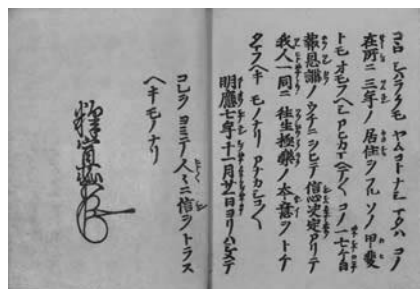 在所ニ三年ノ居住ヲフル ソノ甲斐
トモオモフヘシ アヒカマヘテ〱 コノ一七ケ日
報恩講ノウチニヲヒテ 信心決定アリテ
我人一同ニ 往生極樂ノ本意ヲトケ
タマフヘキ モノナリ アナカシコ〱
明應七年十一月廿一日ヨリハシメテ
コレヲヨミテ人〻ニ信ヲトラス
ヘキモノナリ
釋